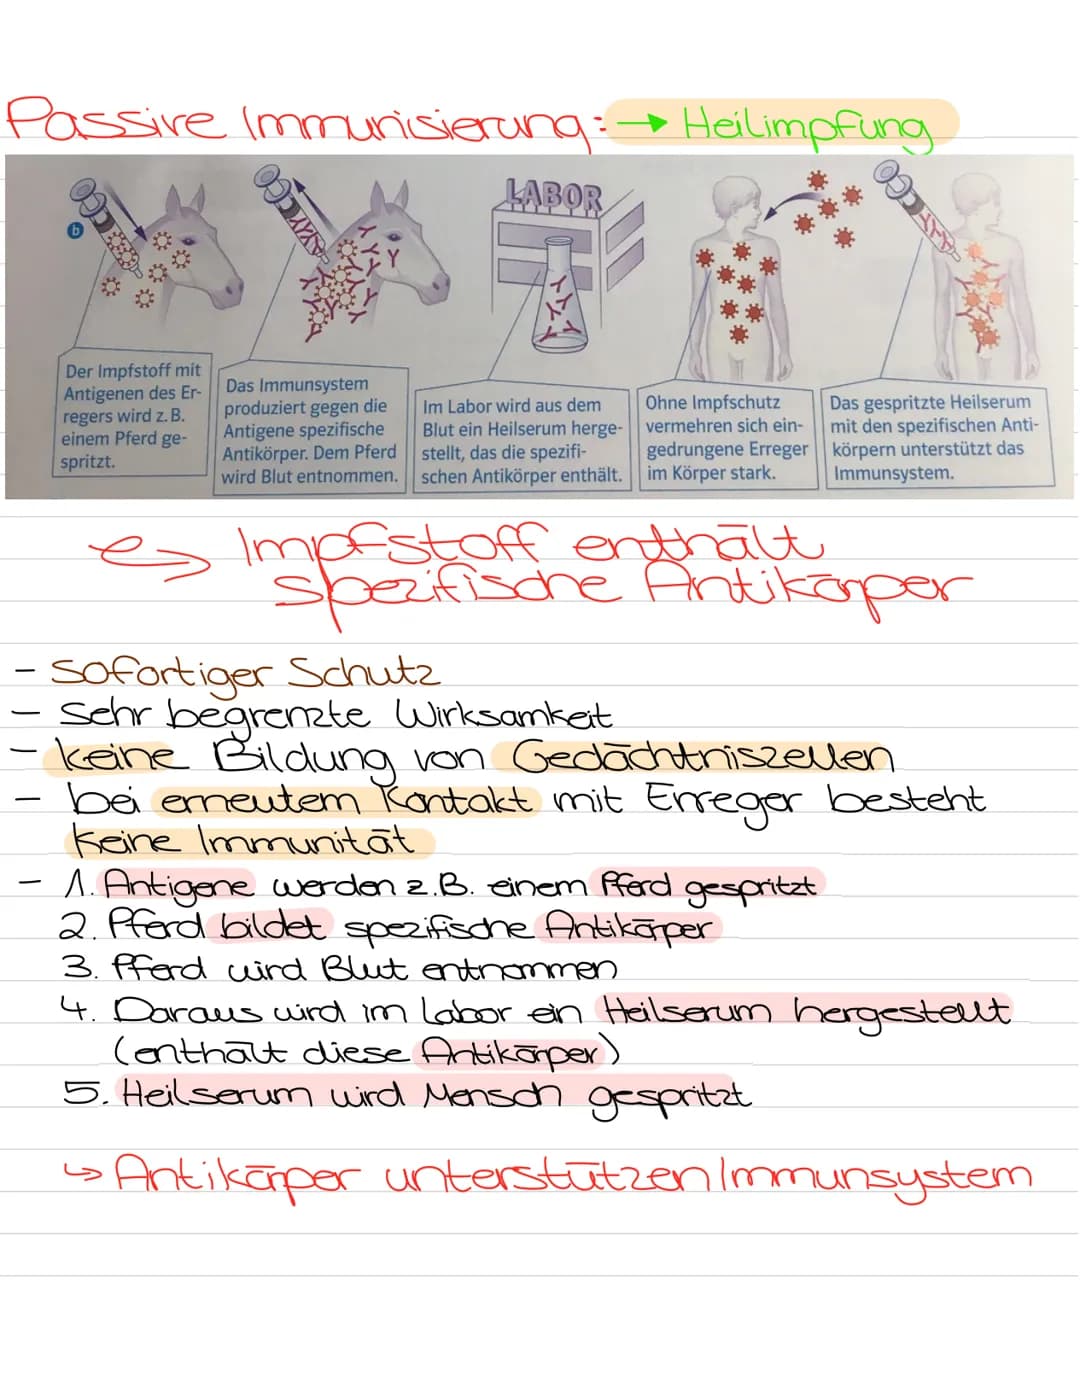 Passive Immunisierung: → Heilimpfung
LABOR
b
Der Impfstoff mit
Antigenen des Er-
regers wird z. B.
einem Pferd ge-
spritzt.
Das Immunsystem
produziert gegen die
Antigene spezifische
Antikörper. Dem Pferd
wird Blut entnommen.
Im Labor wird aus dem
Blut ein Heilserum herge-
stellt, das die spezifi-
schen Antikörper enthält.
Ohne Impfschutz
vermehren sich ein-
gedrungene Erreger
im Körper stark.
Das gespritzte Heilserum
mit den spezifischen Anti-
körpern unterstützt das
Immunsystem.
↪ Impfstoff enthält
spezifische Antikörper
- sofortiger Schutz
- Sehr begrenzte Wirksamkeit
- keine Bildung von Gedächtniszellen
- bei erneutem Kontakt mit Erreger besteht
keine Immunität
- 1. Antigene werden z.B. einem Pferd gespritzt
2. Pferd bildet spezifische Antikörper
3. Pferd wird Blut entnommen
4. Daraus wird im Labor ein Heilserum hergestellt
(enthält diese Antikörper)
5. Heilserum wird Mensch gespritzt
↳ Antikörper unterstützen Immunsystem